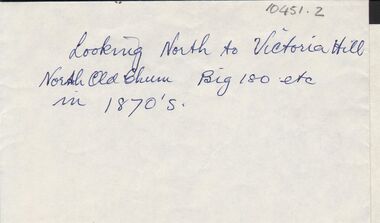 10451.2
Looking North to Victoria Hill
North Old Chum Big 180 etc
in 1870's.